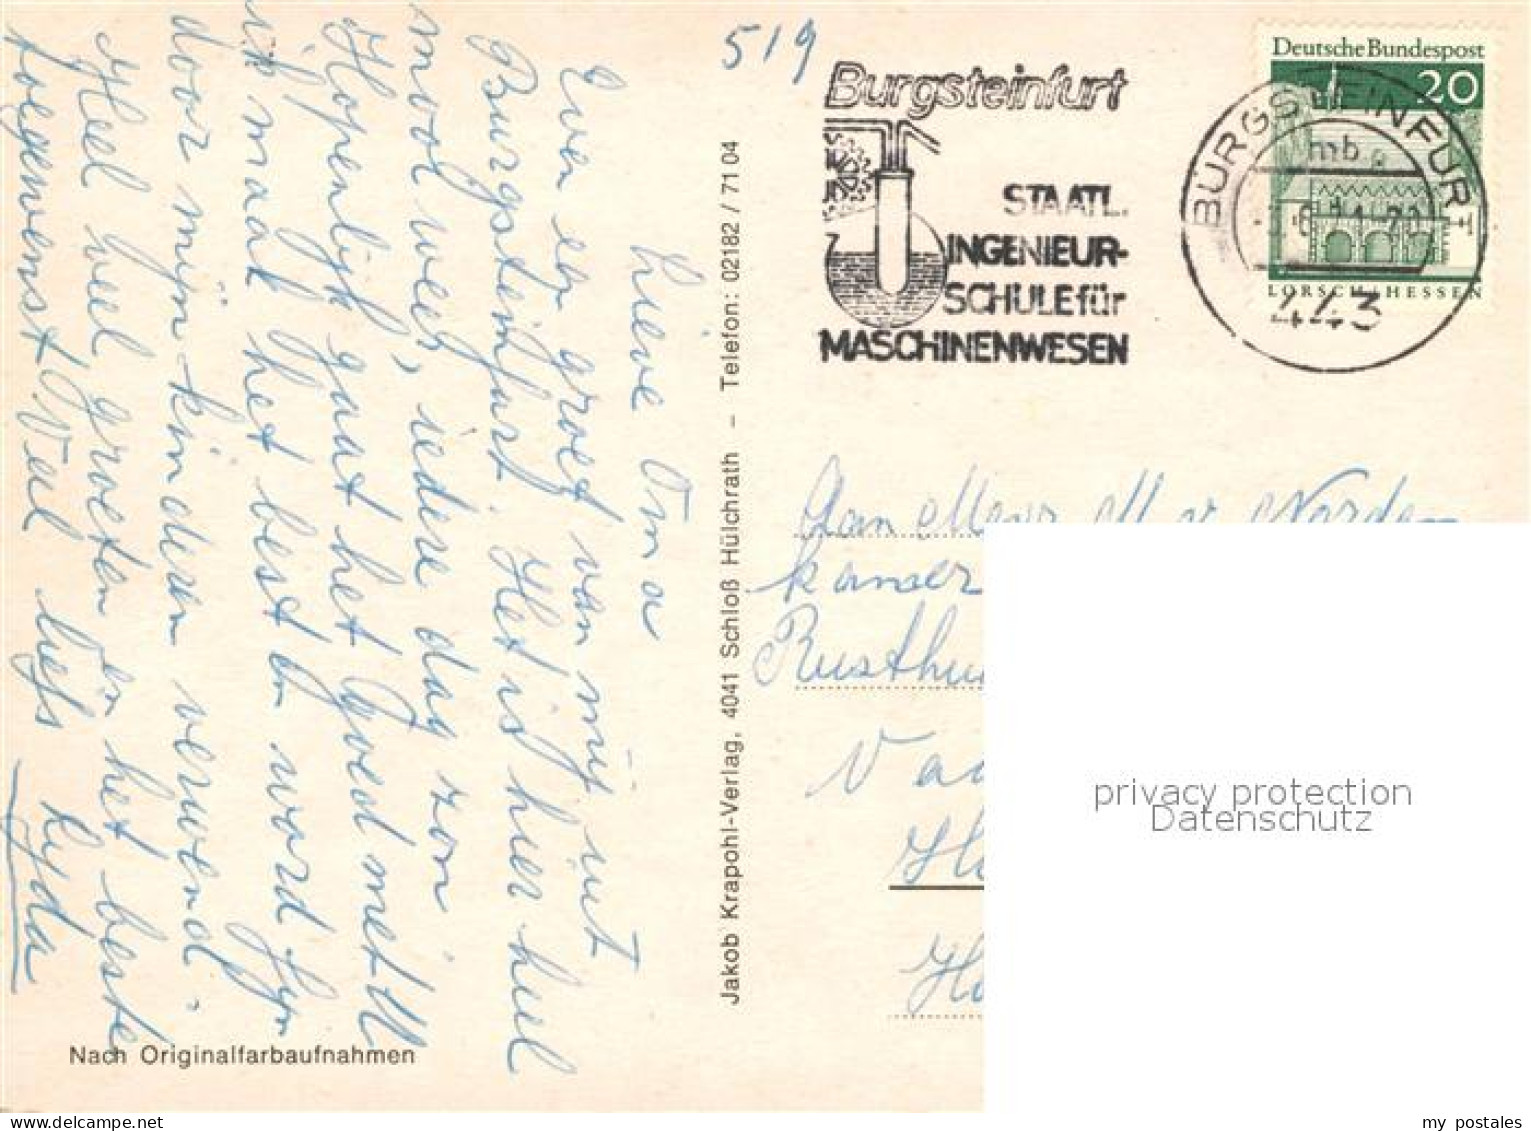 Lieve Oma
Even een groet van mij uit
Burgsteinfurt. Het is hier heel
mooi weer, iedere dag zon
Hopenlijk gaat het goed met U
ik maak het best en word fijn
door mijn kinderen verwend.
Heel veel groeten en het beste
toegewenst Veel liefs Lyda
Nach Originalfarbaufnahmen
Jakob Krapohl-Verlag, 4041 Schloß Hülchrath – Telefon: 02182 / 71 04
519
Burgsteinfurt
STAATL.
INGENIEUR-
SCHULE für
MASCHINENWESEN
Deutsche Bundespost
20
LORSCH / HESSEN
BURGSTEINFURT
mb
443
Aan Mevr M v Norden
kamer
Rusthu
Va
H
H
privacy protection
Datenschutz
my postales